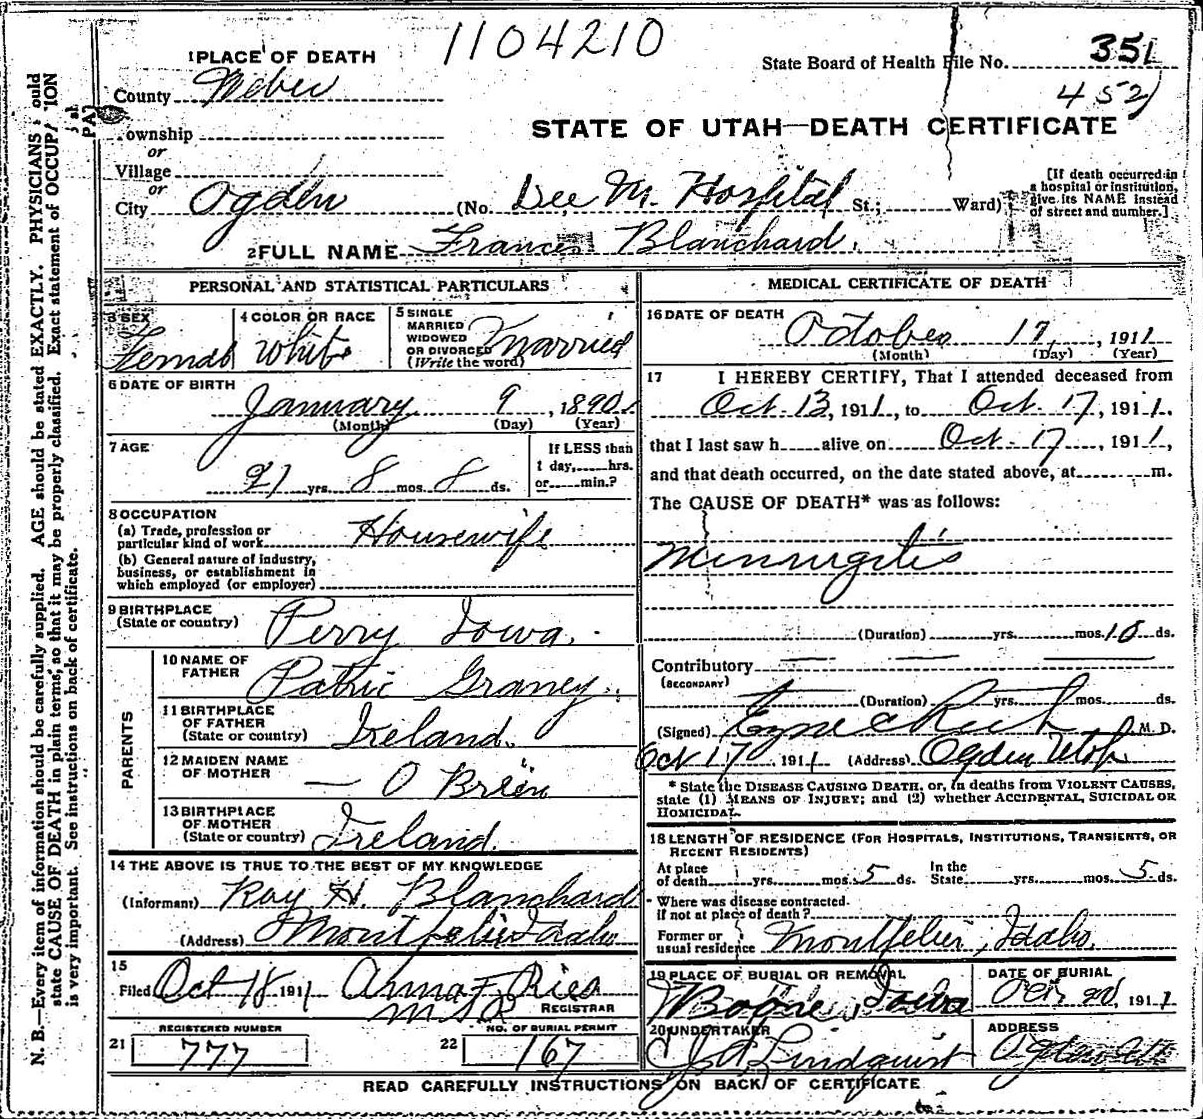 1104210
1 PLACE OF DEATH
State Board of Health File No. 351
County Weber
452
Township
or
STATE OF UTAH—DEATH CERTIFICATE
Village
or
City Ogden (No. Dee M. Hospital St.; Ward)
[If death occurred in a hospital or institution, give its NAME instead of street and number.]
2 FULL NAME Frances Blanchard.
PERSONAL AND STATISTICAL PARTICULARS
3 SEX Female
4 COLOR OR RACE White
5 SINGLE MARRIED WIDOWED OR DIVORCED (Write the word) Married
6 DATE OF BIRTH
January 9, 1890
(Month) (Day) (Year)
7 AGE
21 yrs. 8 mos. 8 ds.
If LESS than 1 day, hrs. or min.?
8 OCCUPATION
(a) Trade, profession or particular kind of work Housewife
(b) General nature of industry, business, or establishment in which employed (or employer)
9 BIRTHPLACE (State or country) Perry Iowa.
PARENTS
10 NAME OF FATHER Patric Graney.
11 BIRTHPLACE OF FATHER (State or country) Ireland.
12 MAIDEN NAME OF MOTHER — O Brien
13 BIRTHPLACE OF MOTHER (State or country) Ireland.
14 THE ABOVE IS TRUE TO THE BEST OF MY KNOWLEDGE
(Informant) Ray H. Blanchard
(Address) Montpelier Idaho
15
Filed Oct 18 1911 Anna F Ries
REGISTRAR
21 REGISTERED NUMBER 777
22 NO. OF BURIAL PERMIT 167
MEDICAL CERTIFICATE OF DEATH
16 DATE OF DEATH
October 17, 1911
(Month) (Day) (Year)
17 I HEREBY CERTIFY, That I attended deceased from
Oct. 13, 1911, to Oct. 17, 1911,
that I last saw h alive on Oct. 17, 1911,
and that death occurred, on the date stated above, at m.
The CAUSE OF DEATH* was as follows:
Menningitis
(Duration) yrs. mos. 10 ds.
Contributory
(SECONDARY)
(Duration) yrs. mos. ds.
(Signed) Rich M. D.
Oct 17, 1911 (Address) Ogden Utah
* State the DISEASE CAUSING DEATH, or, in deaths from VIOLENT CAUSES, state (1) MEANS OF INJURY; and (2) whether ACCIDENTAL, SUICIDAL OR HOMICIDAL.
18 LENGTH OF RESIDENCE (FOR HOSPITALS, INSTITUTIONS, TRANSIENTS, OR RECENT RESIDENTS)
At place of death yrs. mos. 5 ds. In the State yrs. mos. 5 ds.
Where was disease contracted. If not at place of death?
Former or usual residence Montpelier, Idaho.
19 PLACE OF BURIAL OR REMOVAL Boone, Iowa
DATE OF BURIAL 1911
20 UNDERTAKER J A Lindquist
ADDRESS Ogden
READ CAREFULLY INSTRUCTIONS ON BACK OF CERTIFICATE
N. B.—Every item of information should be carefully supplied. AGE should be stated EXACTLY. PHYSICIANS should
state CAUSE OF DEATH in plain terms, so that it may be properly classified. Exact statement of OCCUPATION
is very important. See instructions on back of certificate.